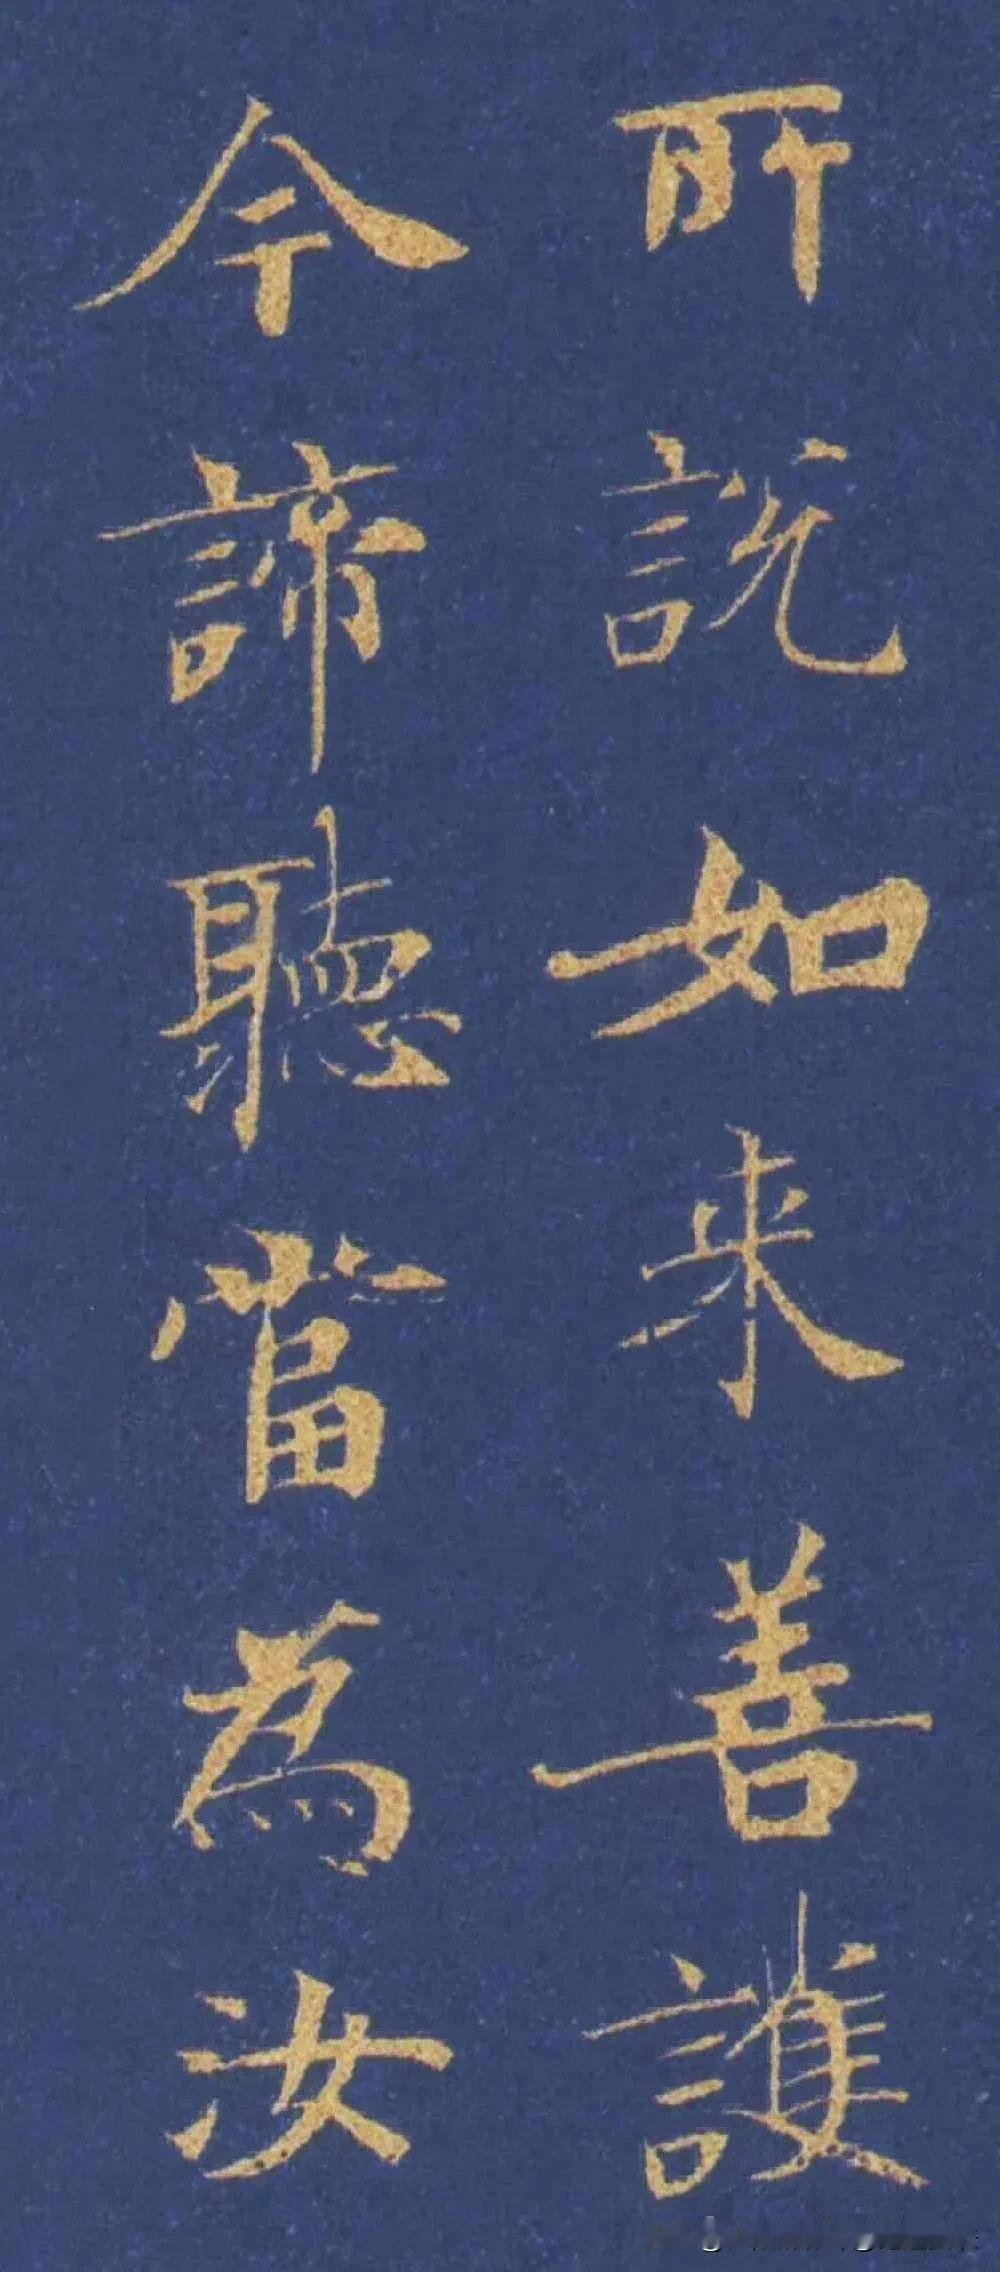 所說如来善護
今諦聽當為汝